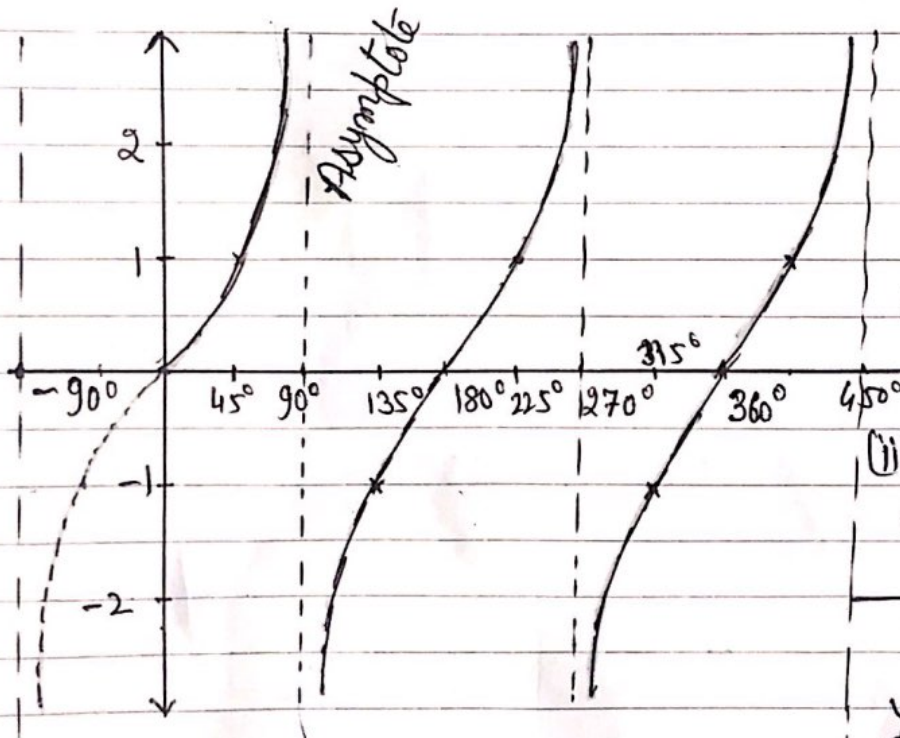 Asymptote
2
1
315°
-90° 45° 90° 135° 180° 225° 270° 360° 450°
(ii
-1
-2